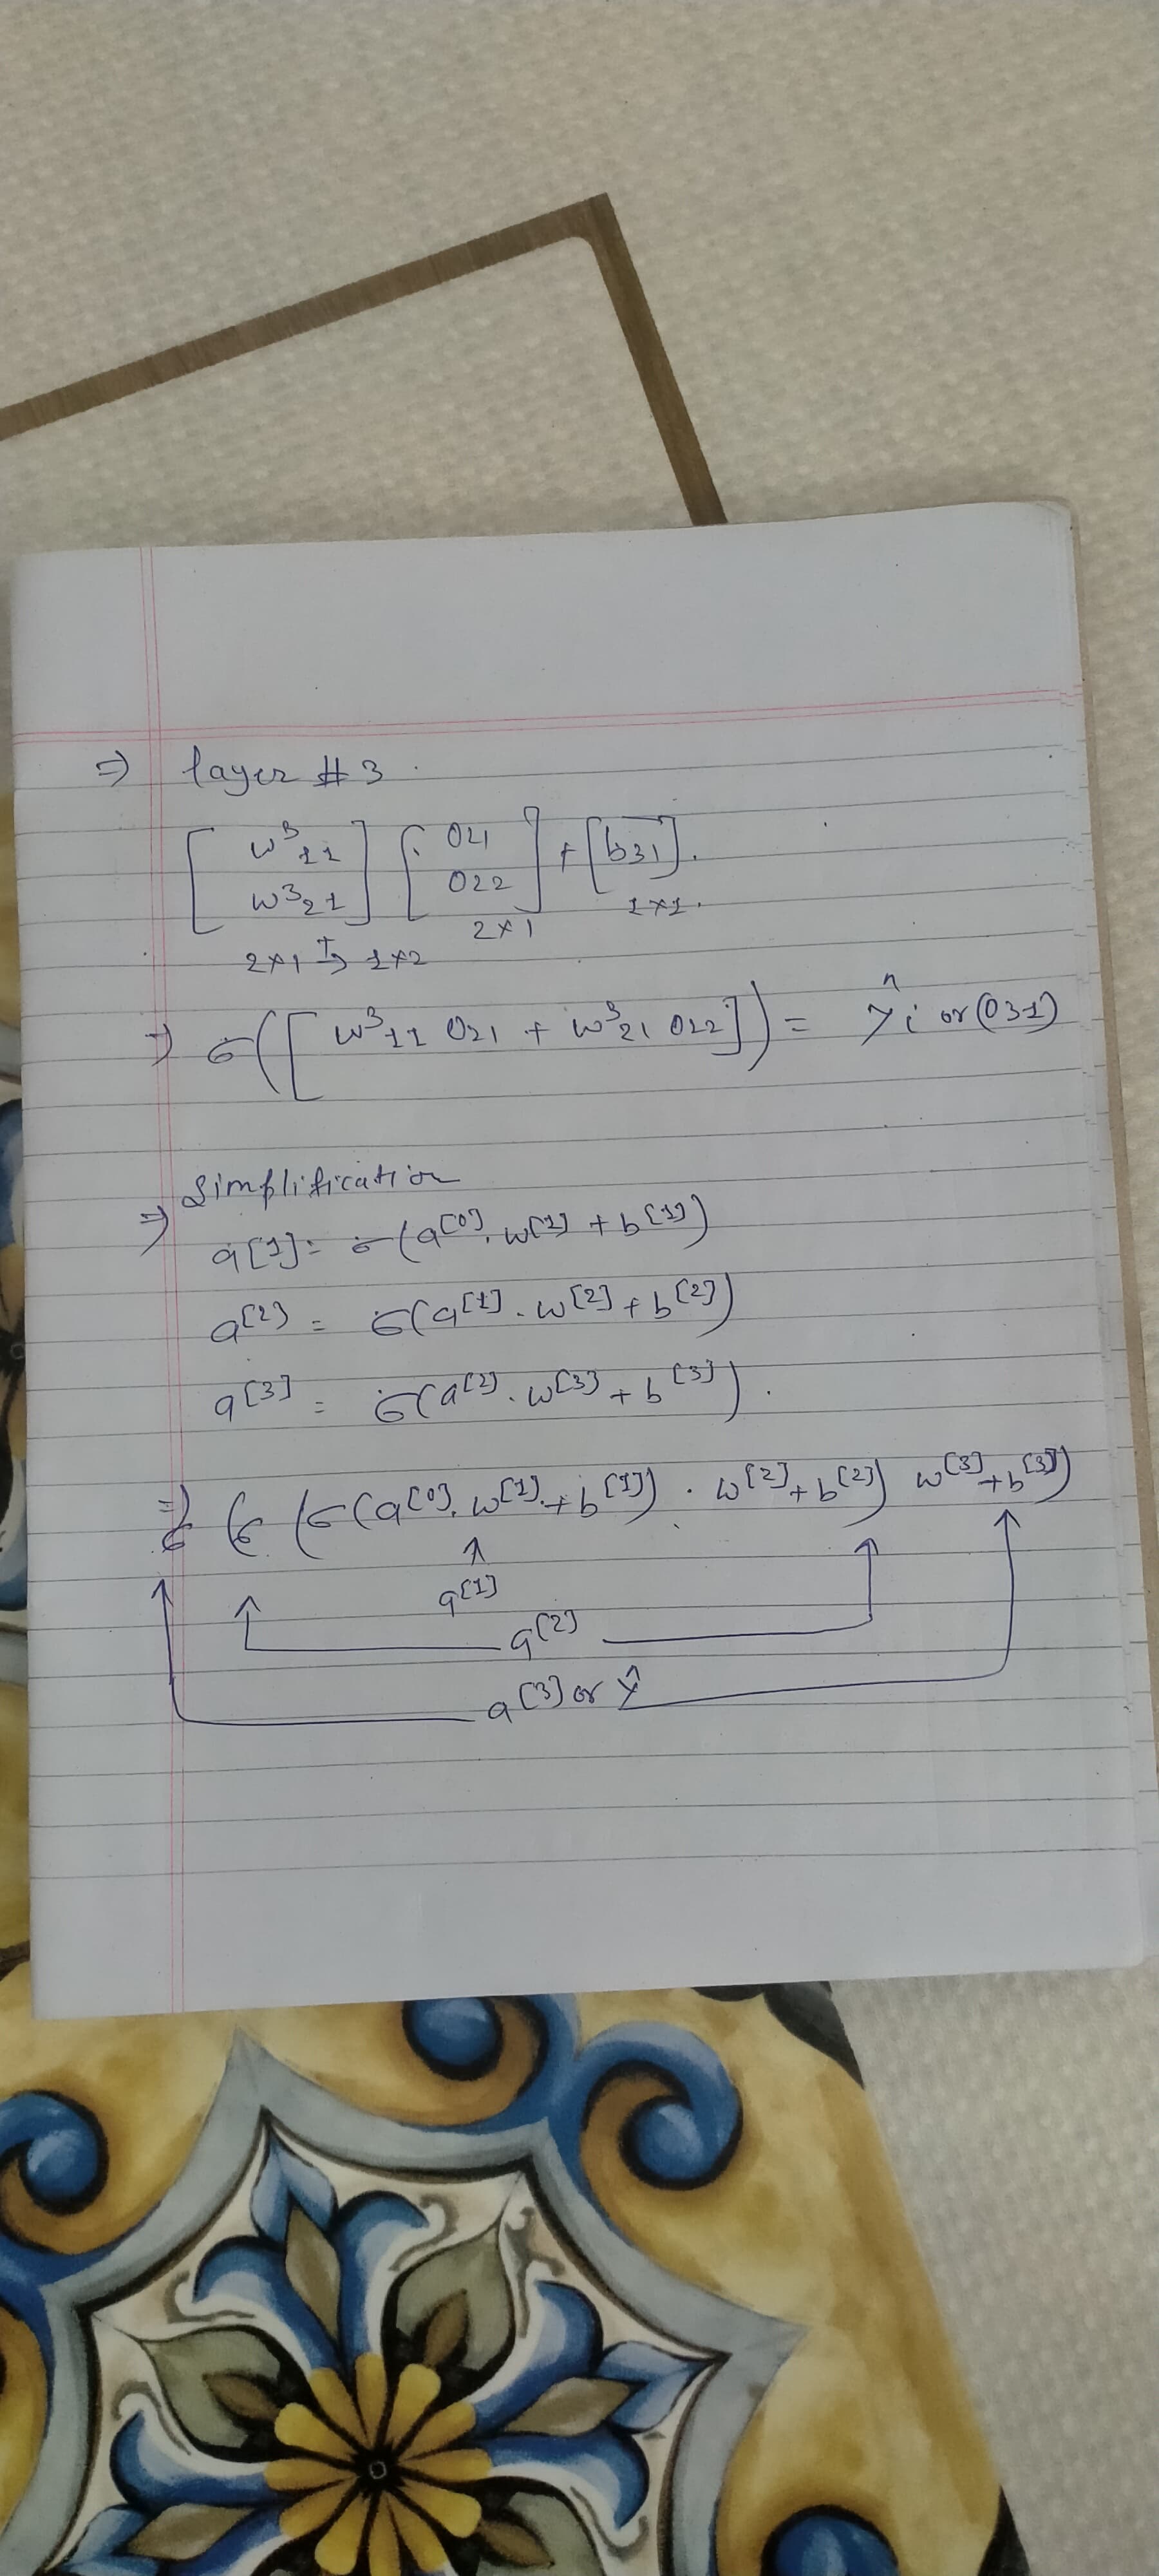 ⇒ layer # 3.
[w³₁₁ w³₂₁] [O₂₁ O₂₂] + [b₃₁].
2×1 T→ 1×2 2×1 1×1.
⇒ σ([w³₁₁ O₂₁ + w³₂₁ O₂₂]) = ŷi or (O31)
⇒ Simplification
a[1] = σ(a[0]. w[1] + b[1])
a[2] = σ(a[1]. w[2] + b[2])
a[3] = σ(a[2]. w[3] + b[3]).
⇒ σ(σ(σ(a[0]. w[1] + b[1]). w[2] + b[2]) w[3] + b[3])
a[1]
a[2]
a[3] or Ŷ